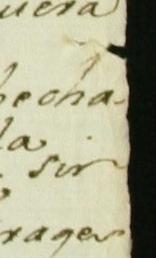 uera
becha
la
sir
rages